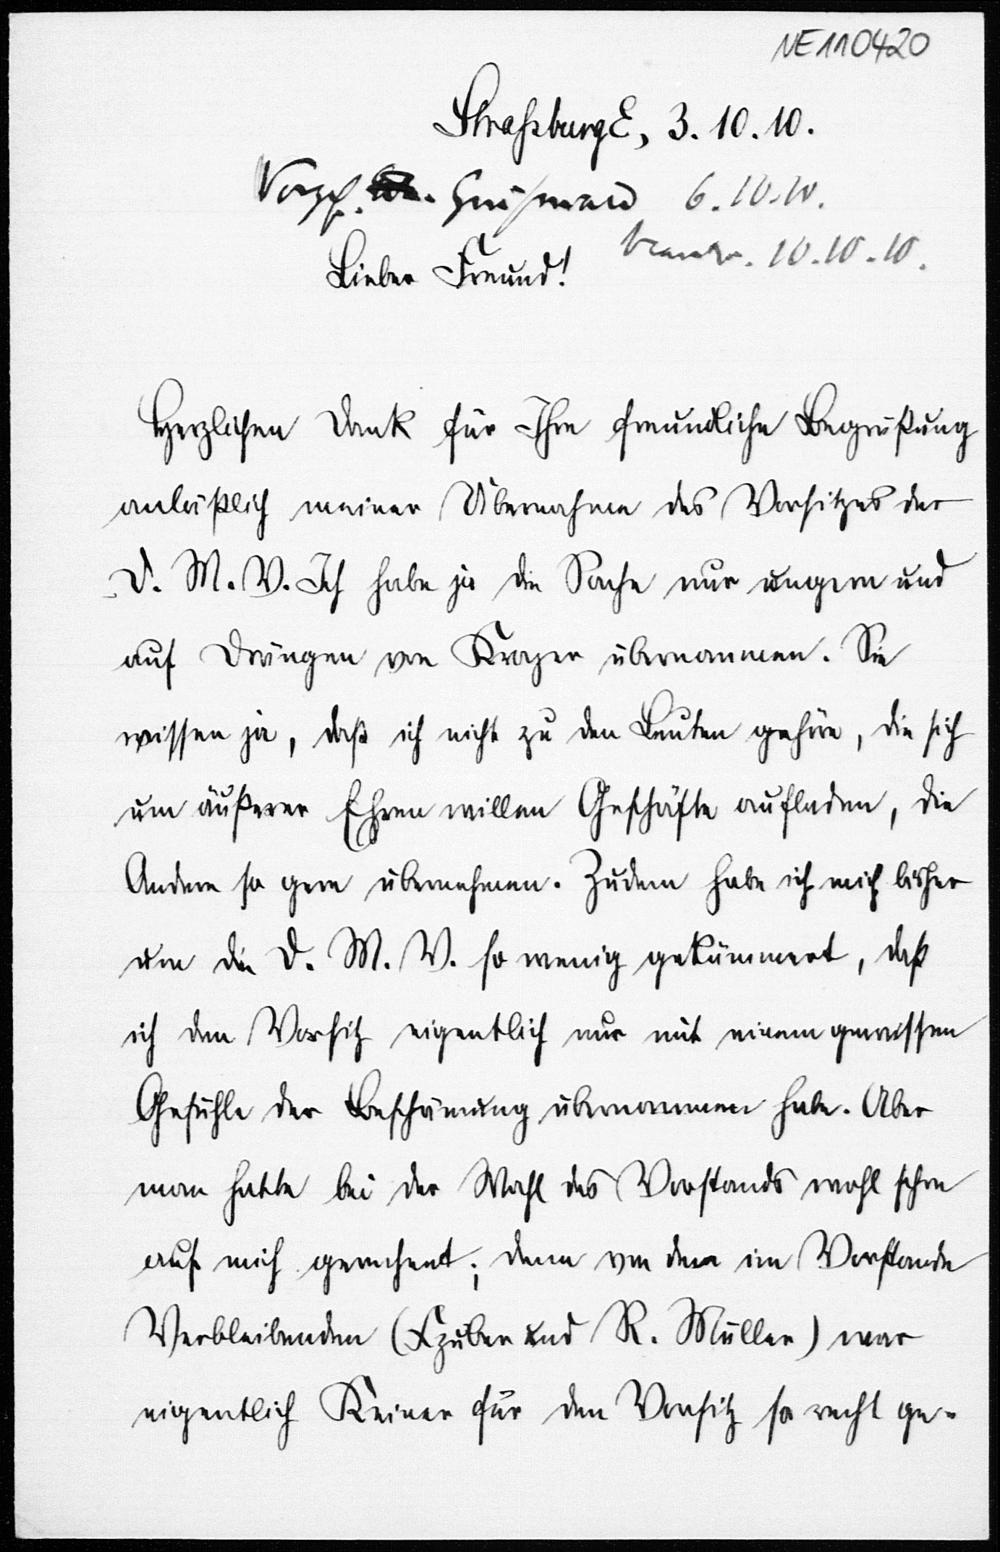 NE110420
Straßburg E, 3. 10. 10.
6. 10. 10.
10. 10. 10.
Lieber Freund!
Herzlichen Dank für Ihre freundliche Begrüßung
anläßlich meiner Übernahme des Vorsitzes der
D. M. V. Ich habe ja die Sache nur ungern und
auf Drängen von Krazer übernommen. Sie
wissen ja, daß ich nicht zu den Leuten gehöre, die sich
um äußerer Ehren willen Geschäfte aufladen, die
Andere so gern übernehmen. Zudem habe ich mich bisher
um die D. M. V. so wenig gekümmert, daß
ich den Vorsitz eigentlich nur mit einem gewissen
Gefühle der Beschämung übernommen habe. Aber
man hatte bei der Wahl des Vorstands wohl schon
auf mich gerechnet; denn von den im Vorstande
Verbleibenden (Gzuber und R. Müller) war
eigentlich Keiner für den Vorsitz so recht ge-